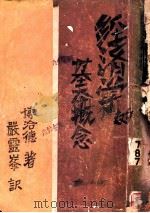 經濟學的
基本概念
博洽德 著
嚴靈峯 譯